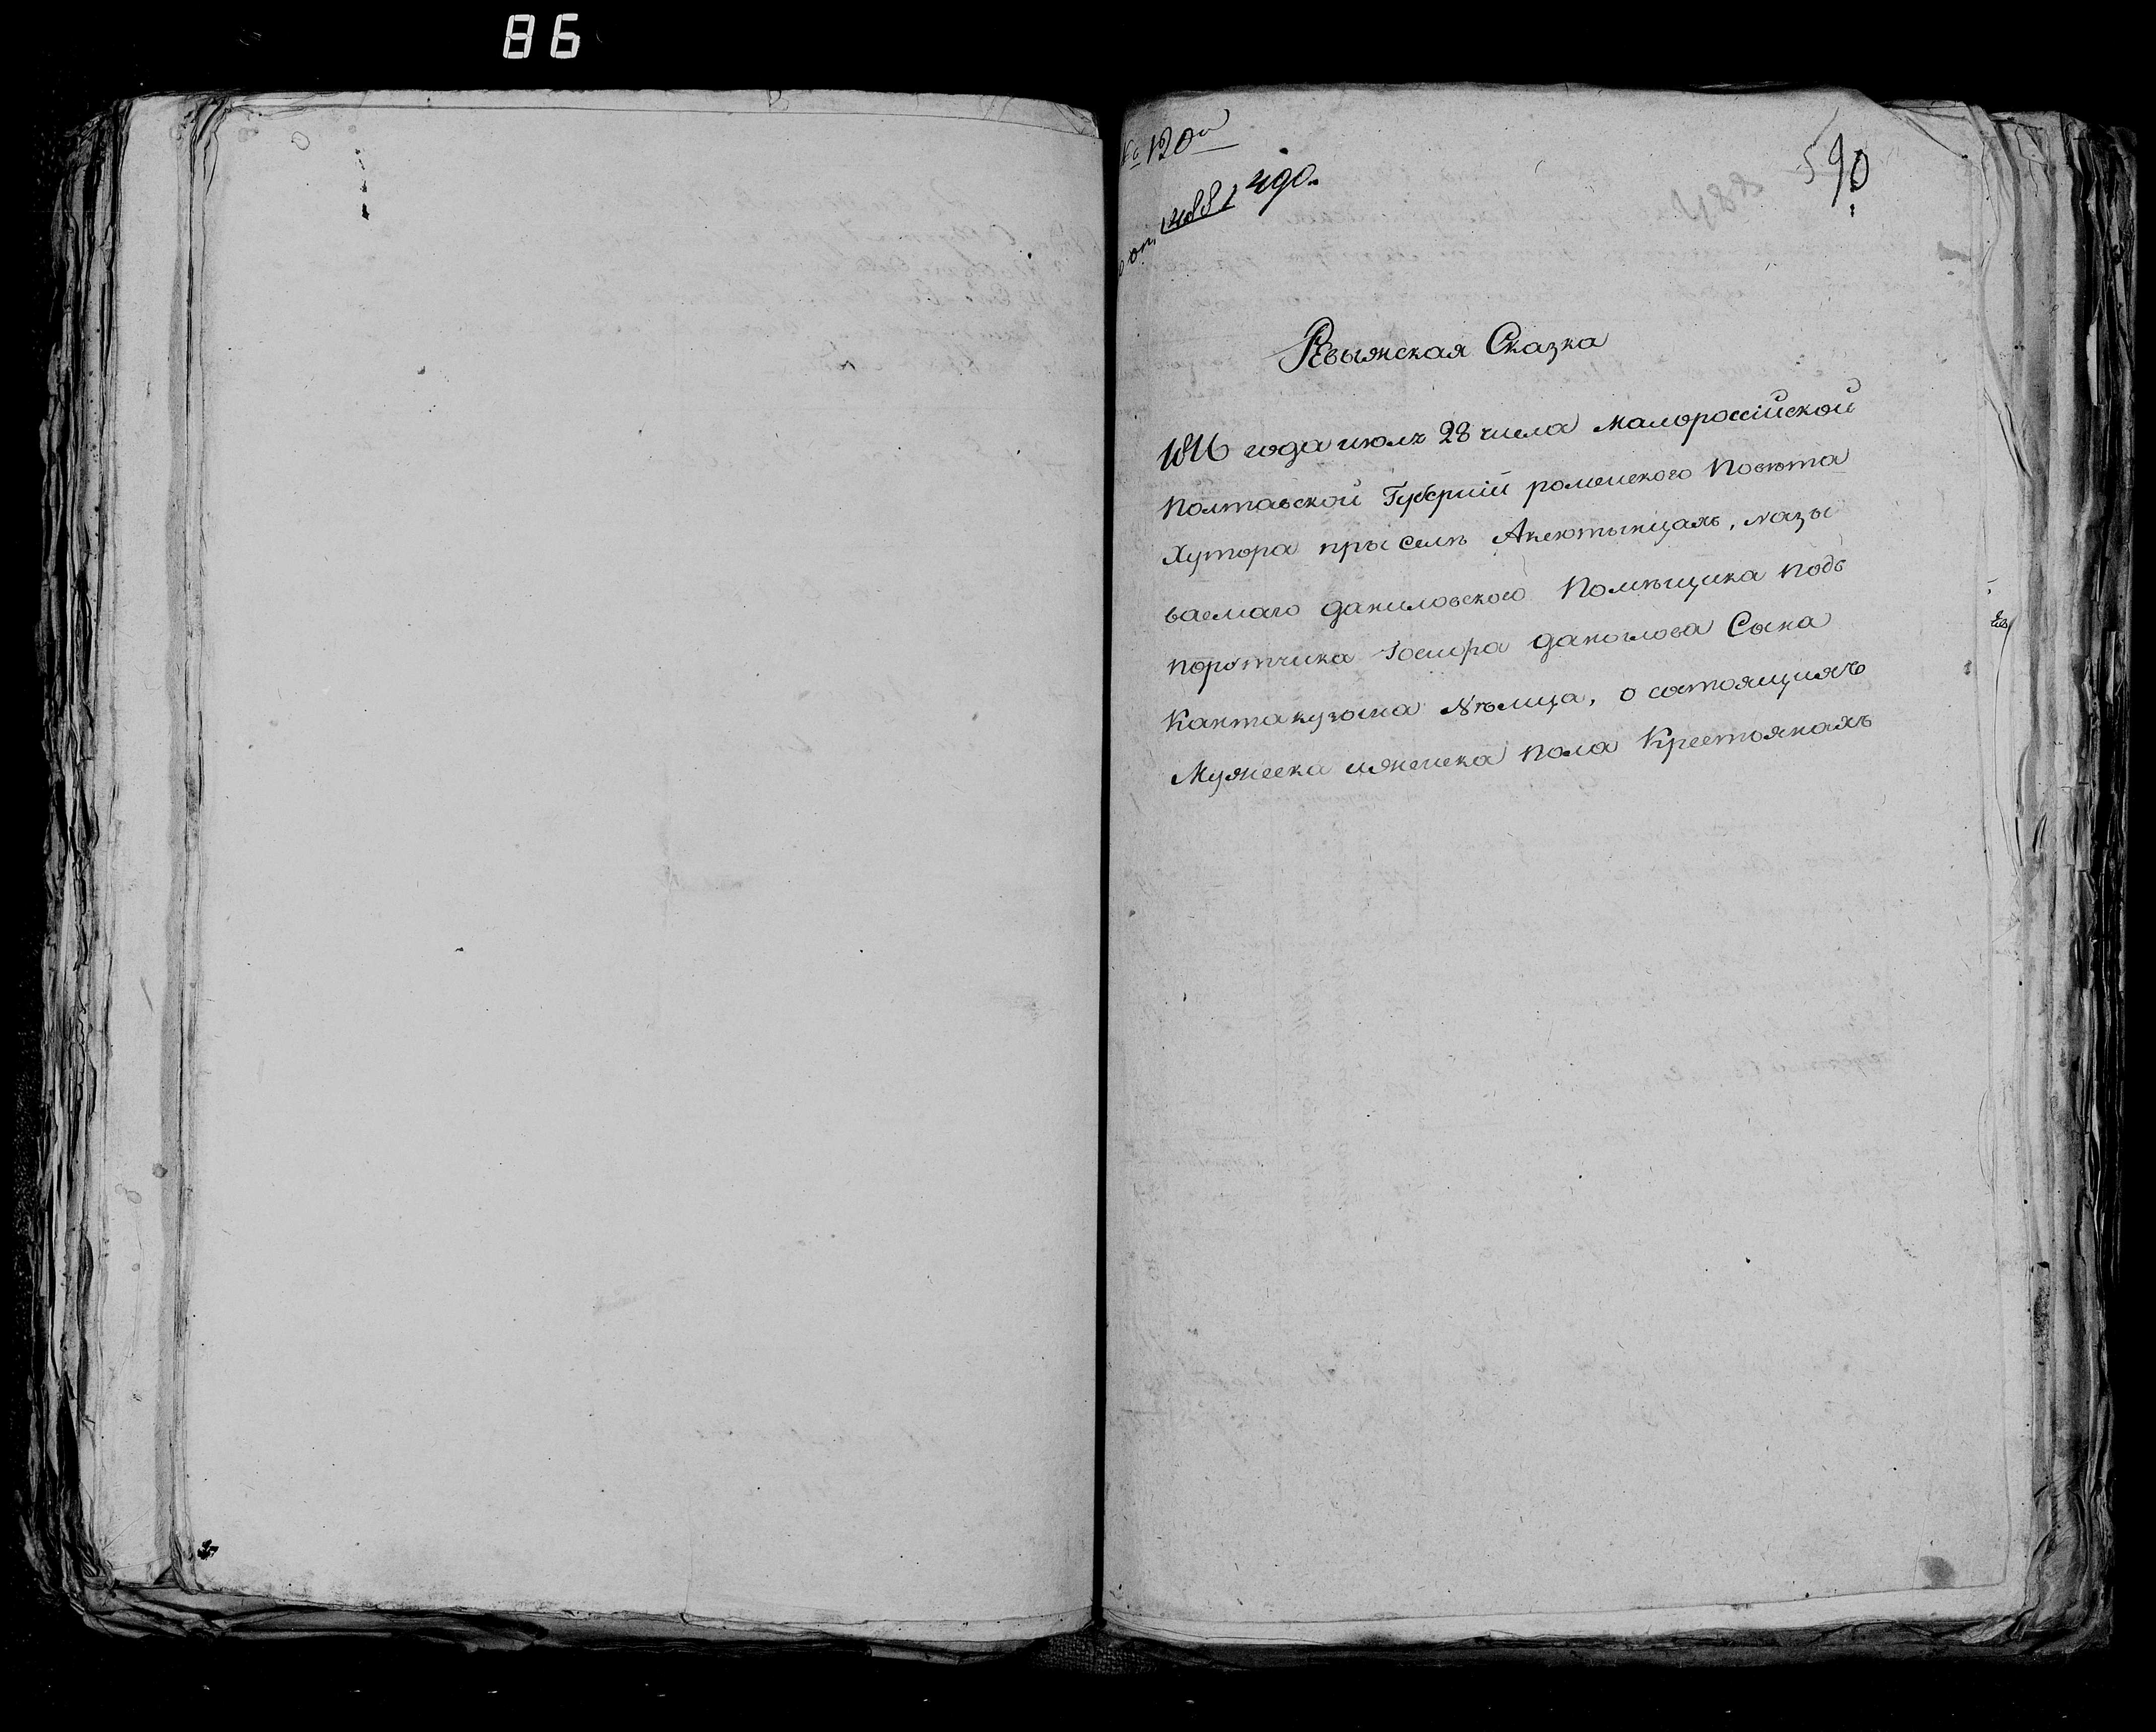 86
№ 120й
488 490.
488
590
Ревыжская Сказка
1816 года июля 28 числа малороссійской
Полтавской Губерніи роменского Повѣта
Хутора при селѣ Аксютынцахъ, назы
ваемаго даниловского Помѣщика Подъ
поротчика данилова Сына
Кантакузына о состоящихъ
Мужеска и женска пола Крестьянахъ